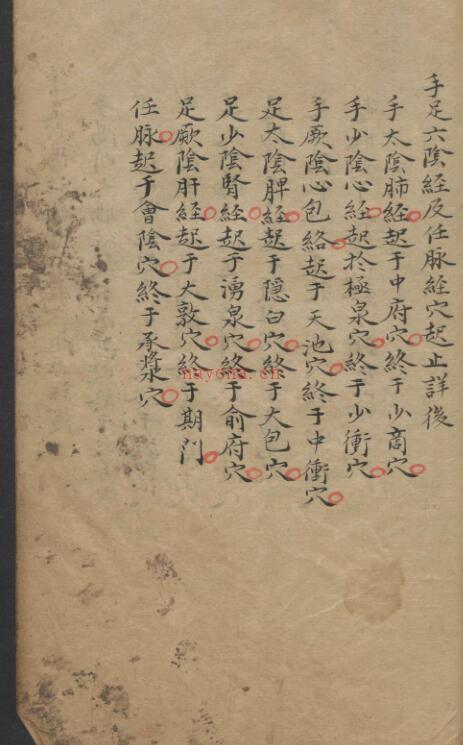 手足六陰經及任脉經穴起止詳後
手太陰肺經起于中府穴終于少商穴
手少陰心經起於極泉穴終于少衝穴
手厥陰心包絡起于天池穴終于中衝穴
足太陰脾經起于隱白穴終于大包穴
足少陰腎經起于湧泉穴終于俞府穴
足厥陰肝經起于大敦穴終于期門
任脉起于會陰穴終于承漿穴
nayona.cn